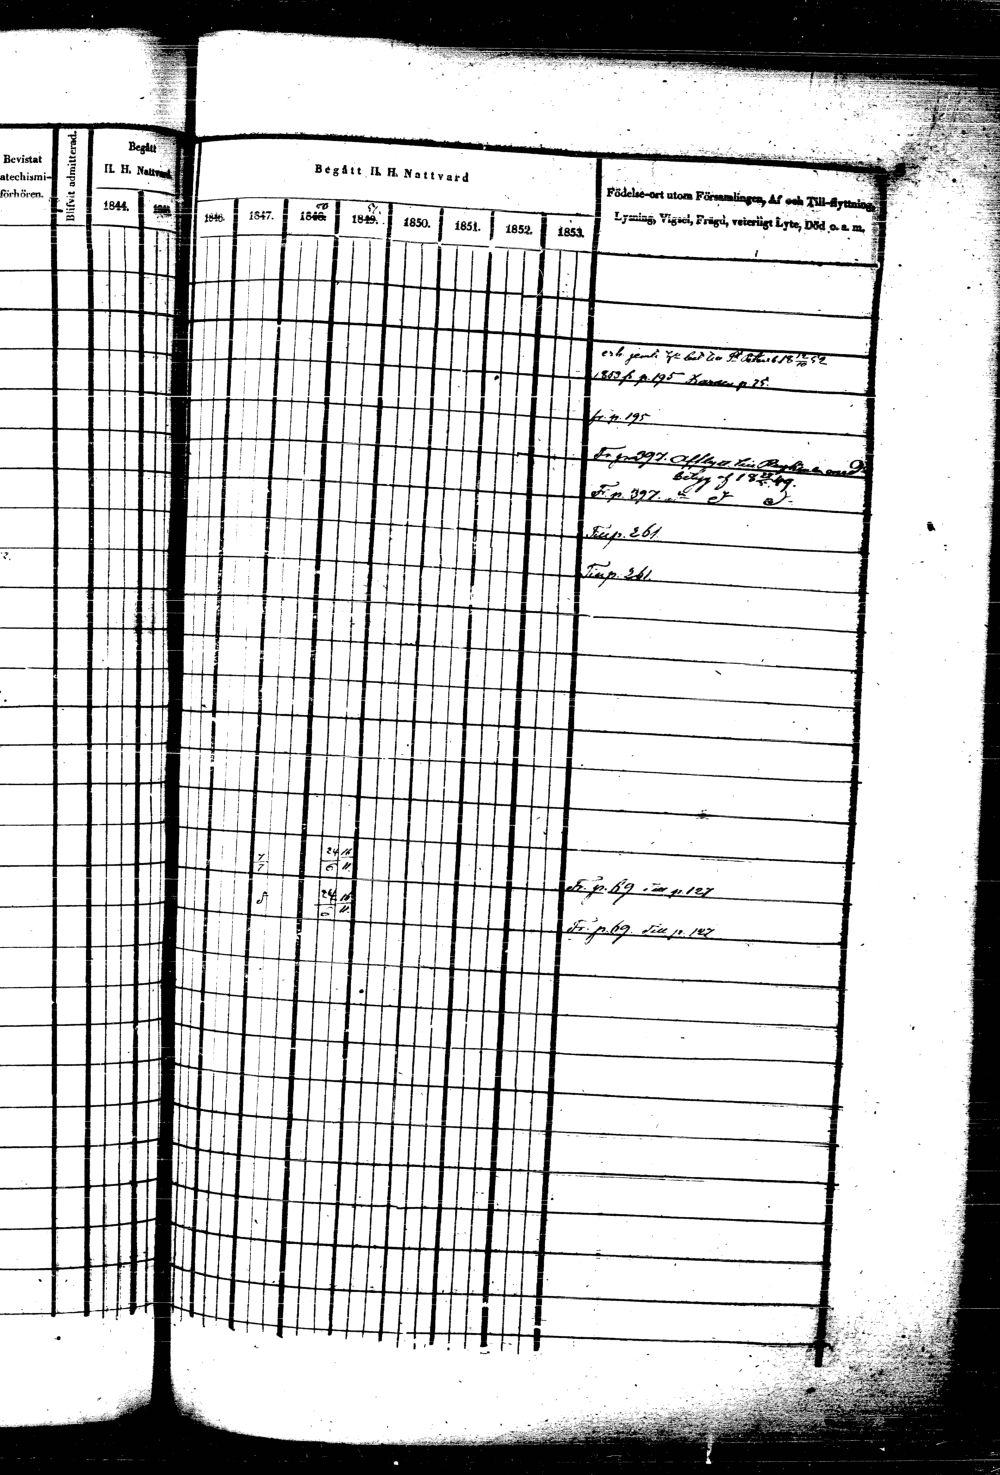 Bevistat
atechismi-
förhören.
Blifvit admitterad.
Begått
H. H. Nattvard
1844.
Begått H. H. Nattvard
1846. 1847. 1848. 1849. 1850. 1851. 1852. 1853.
50 51
Födelse-ort utom Församlingen, Af och Till-flyttning,
Lysning, Vigsel, Frägd, veterligt Lyte, Död o. s. m.
1853 fr p. 195 p. 75.
fr. p. 195
Fr. p. 397.
betyg af 18 49.
Fr. p. 397.
Till p. 261
Till p. 261.
7/7 24/6 11.
Fr. p. 69 Till p. 127
8 24/6 11.
Fr. p. 69. Till p. 127